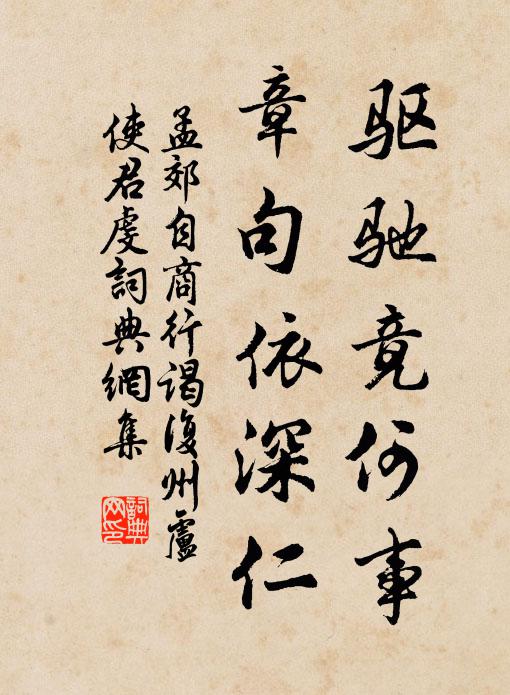 驱驰竟何事
章句依深仁
孟郊自商行谒復州盧
使君虔詞典網集
詞典
网印